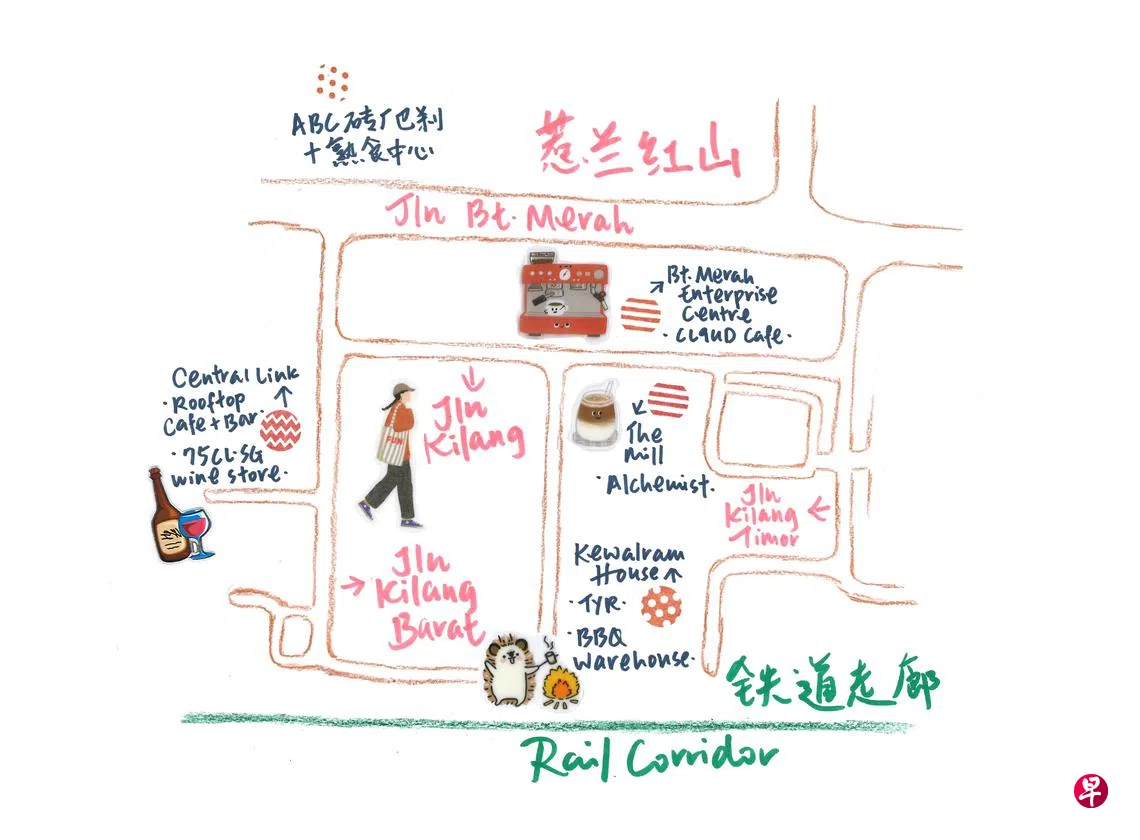 ABC砖厂巴刹
+熟食中心
惹兰红山
Jln Bt. Merah
Bt. Merah
Enterprise
Centre
· CLOUD Cafe ·
Central Link
· Rooftop
Cafe + Bar ·
· 75CL.SG
wine store ·
Jln
Kilang
FUN
The
Mill
· Alchemist.
Jln
Kilang
Timor
Jln
Kilang
Barat
Kewalram
House
· TYR ·
· BBQ
Warehouse ·
铁道走廊
Rail Corridor
早